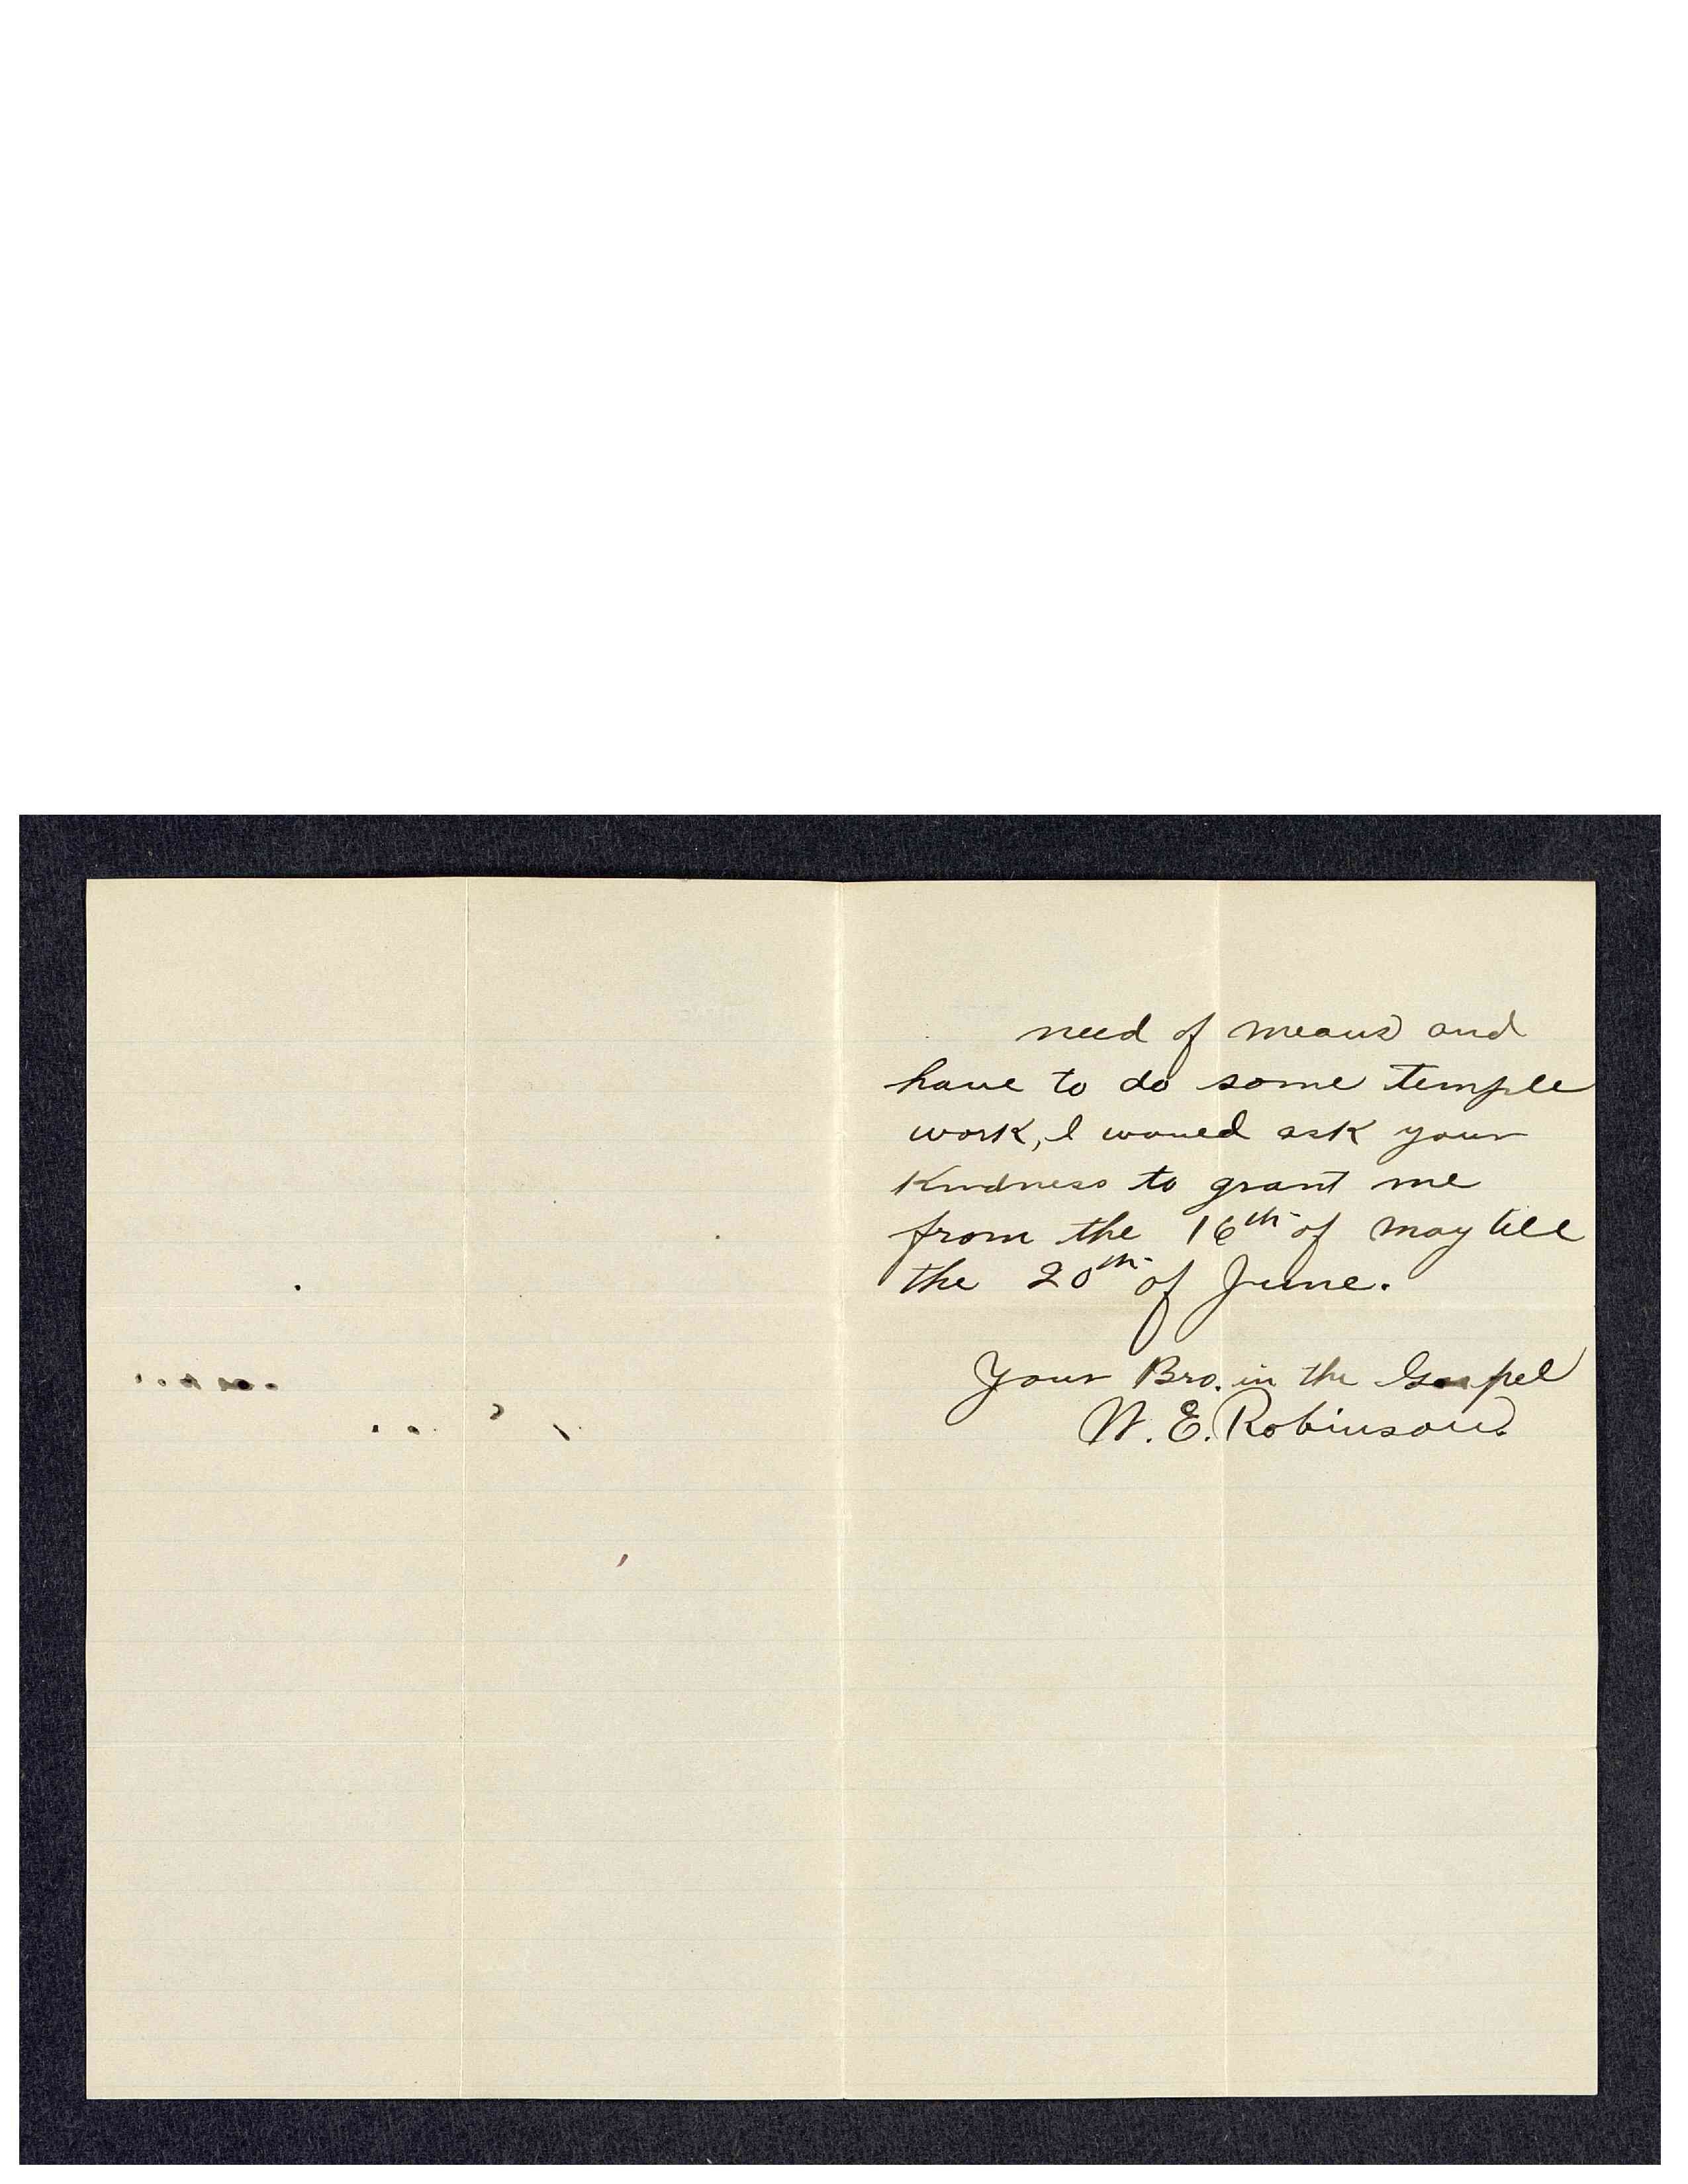 need of means and
have to do some temple
work, I would ask your
kindness to grant me
from the 16th of may till
the 20th of June.
Your Bro. in the Gospel
W. E. Robinson.